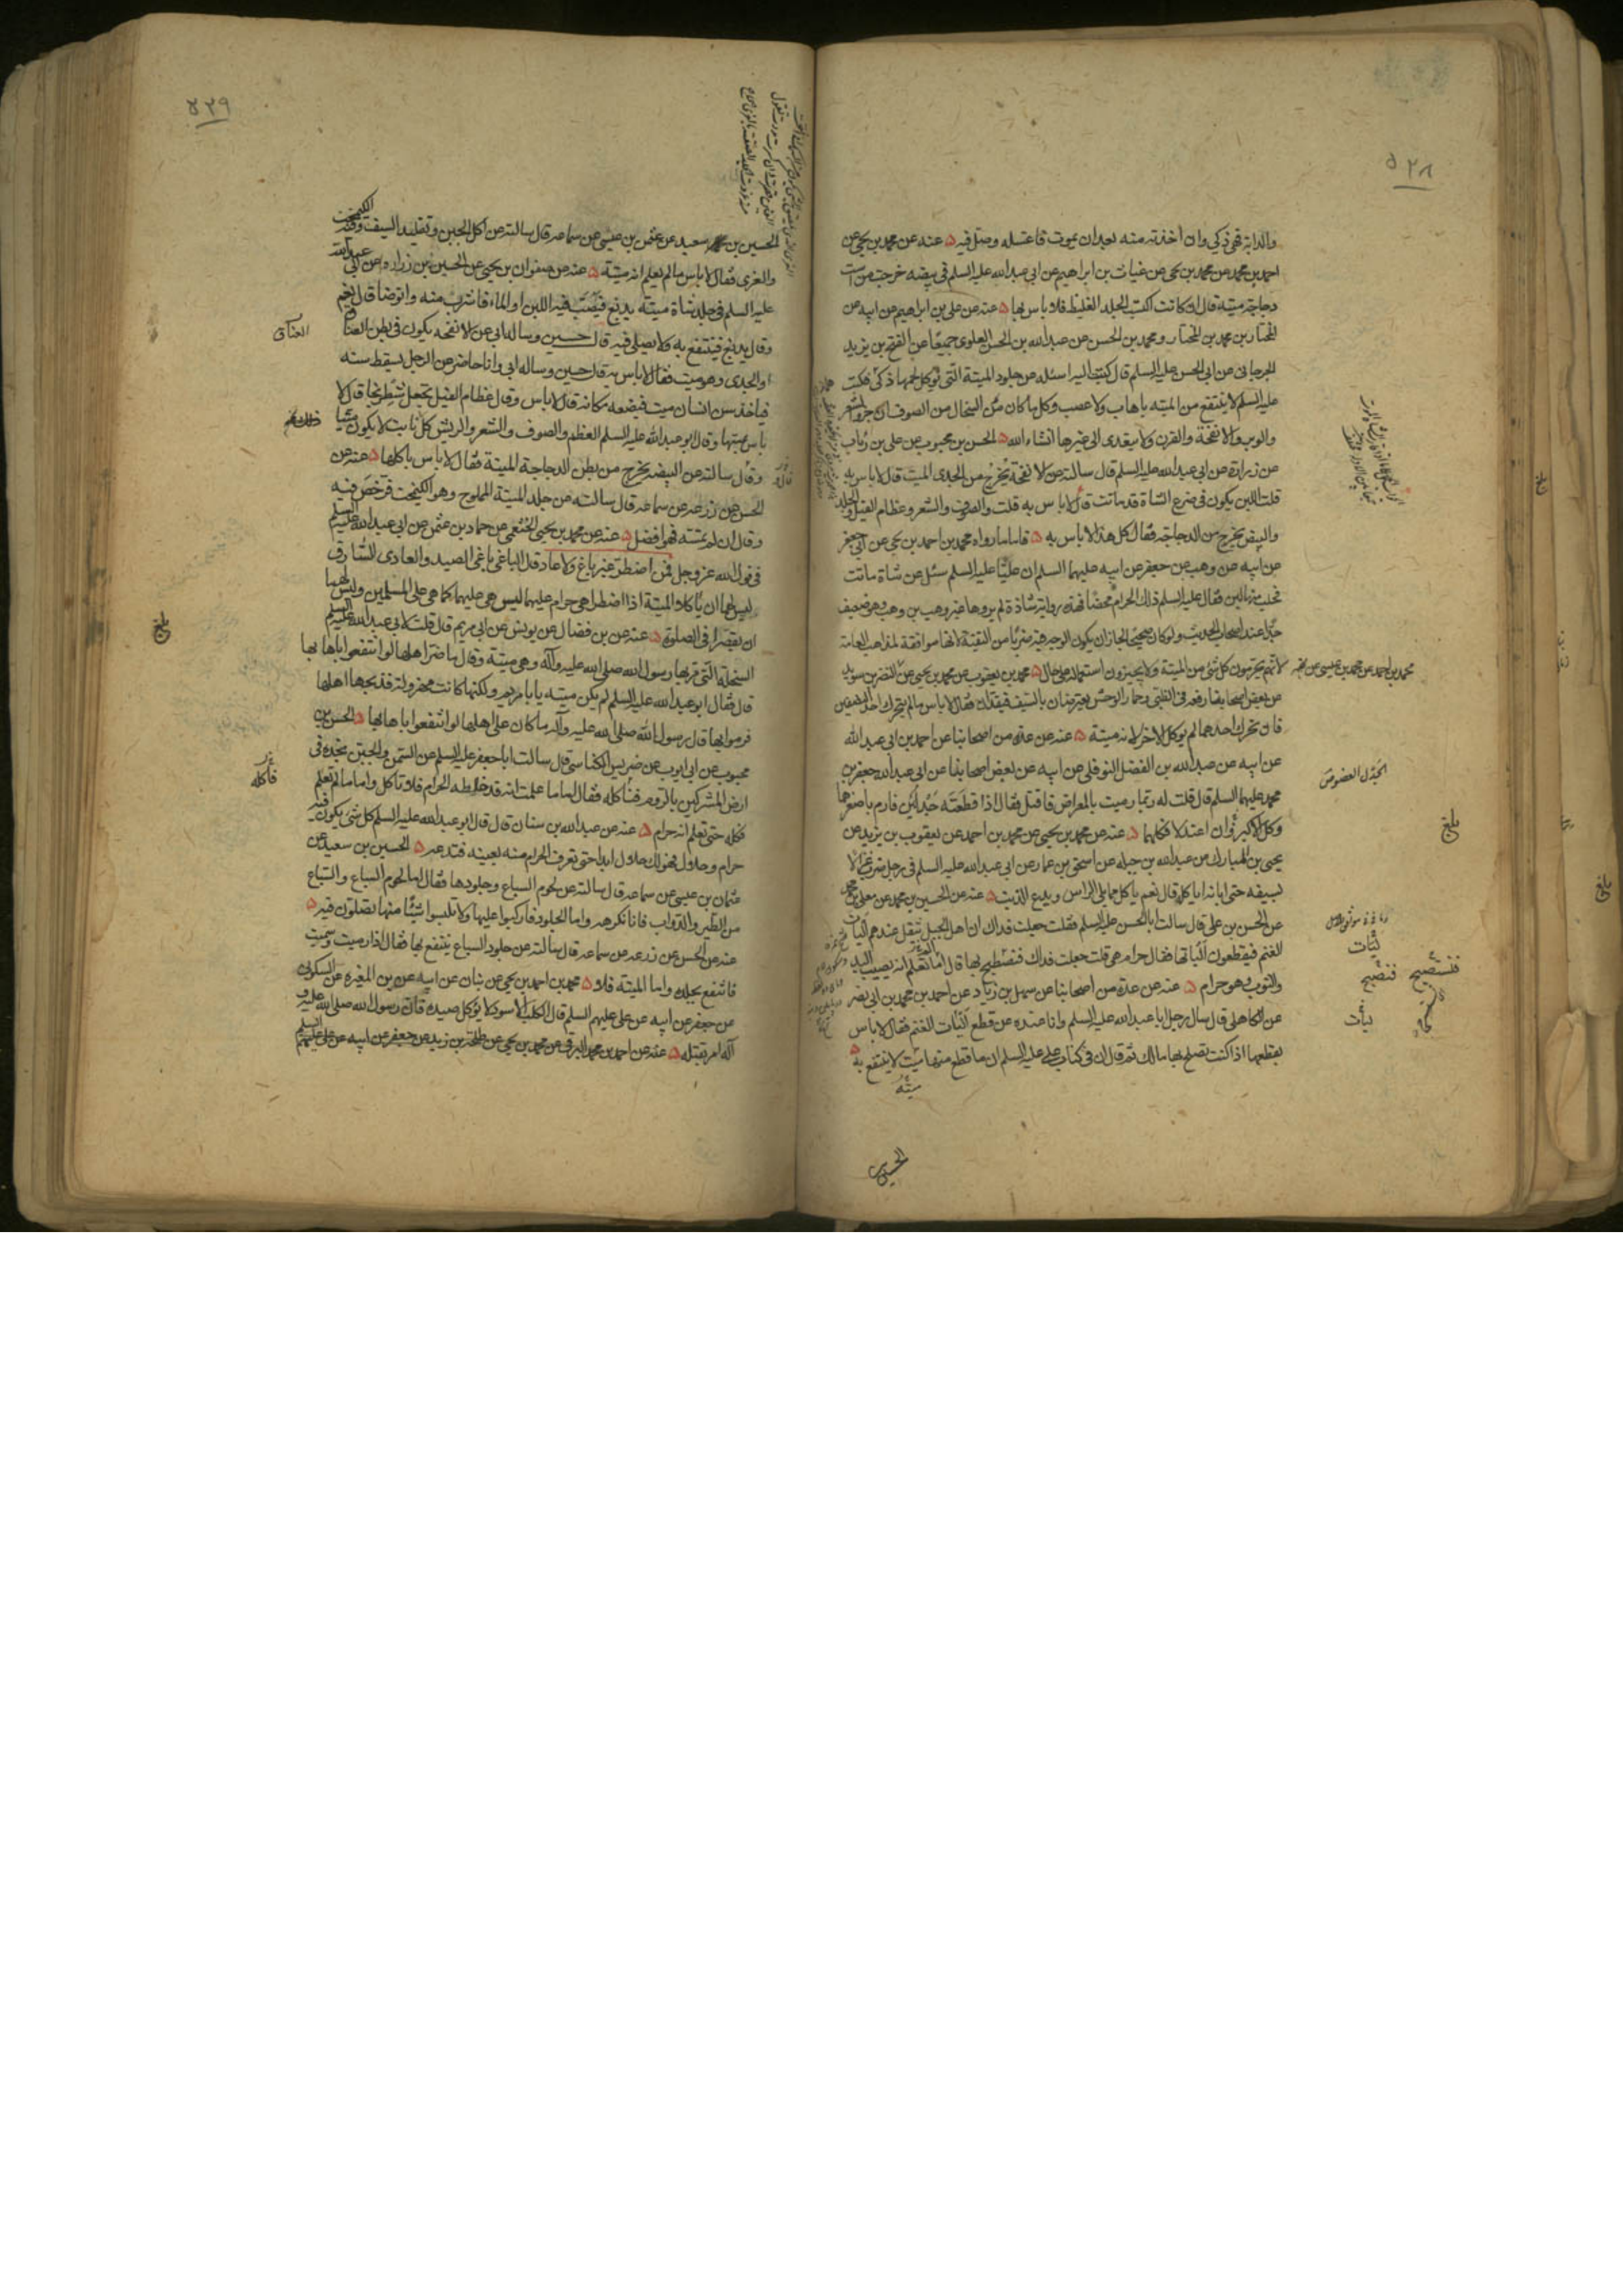 ٥٢٨
والدابة فهي ذكي وان أخذته منه بعد ان يموت فاغسله وصل فيه ۵ عنه عن محمد بن يحيى عن
احمد بن محمد عن محمد بن يحيى عن غياث بن ابراهيم عن ابي عبد الله عليه السلم في بيضه خرجت من است
دجاجة ميته قال ان كانت اكتست الجلد الغليظ فلا باس بها ۵ عنه عن علي بن ابراهيم عن ابيه عن
المختار بن محمد بن المختار ومحمد بن الحسن عن عبد الله بن الحسن العلوي جميعًا عن الفتح بن يزيد
الجرجاني عن ابي الحسن عليه السلم قال كتبت اليه اسئله عن جلود الميتة التي يؤكل لحمها ذكي فكتب
عليه السلم لا ينتفع من الميته باهاب ولا عصب وكل ما كان من السخال من الصوف ان جز والشعر
والوبر والانفحة والقرن ولا يتعدى الى غيرها انشاء الله ۵ الحسن بن محبوب عن علي بن رئاب
عن زرارة عن ابي عبد الله عليه السلم قال سالته عن الانفحة يخرج من الجدى الميت قال لا باس به
قلت اللبن يكون في ضرع الشاة قد ماتت قال لا باس به قلت والصوف والشعر وعظام الفيل والجلد
والبيض يخرج من الدجاجة فقال كل هذا لا باس به ۵ فاما ما رواه محمد بن احمد بن يحيى عن ابي جعفر
عن ابيه عن وهب عن جعفر عن ابيه عليهما السلم ان عليًّا عليه السلم سئل عن شاة ماتت
فحلب منها لبن فقال عليه السلم ذلك الحرام محضًا فهذه رواية شاذة لم يروها غير وهب بن وهب وهو ضعيف
جدًّا عند اصحاب الحديث ولو كان صحيحًا لجاز ان يكون الوجه فيه ضربًا من التقية لانها موافقة لمذاهب العامة
لانهم يحرمون كل شئ من الميتة ولا يجيزون استعماله على حال ۵ محمد بن يعقوب عن محمد بن يحيى عن النضر بن سويد
محمد بن احمد عن محمد بن عيسى عن
عن بعض اصحابنا رفعه في الظبى وحمار الوحش يعترضان بالسيف فيقدان فقال لا باس مالم يتحرك احد النصفين
فان تحرك احدهما لم يوكل الاخر لانه ميتة ۵ عنه عن عدة من اصحابنا عن احمد بن ابي عبد الله
عن ابيه عن عبد الله بن الفضل النوفلى عن ابيه عن بعض اصحابنا عن ابي عبد الله جعفر بن
الجدل العضو
محمد عليهما السلم قال قلت له ربما رميت بالمعراض فاقتل فقال اذا قطعته جدلين فارم باصغرهما
وكل الاكبر وان اعتدلا فكلهما ۵ عنه عن محمد بن يحيى عن محمد بن احمد عن يعقوب بن يزيد عن
بلغ
يحيى بن المبارك عن عبد الله بن جبلة عن اسحق بن عمار عن ابي عبد الله عليه السلم في رجل ضرب غزالًا
بسيفه حتى ابانه اياكله قال نعم ياكل مما يلى الراس ويدع الذنب ۵ عنه عن الحسين بن محمد عن معلى بن محمد
عن الحسن بن علي قال سالت ابا الحسن عليه السلم فقلت جعلت فداك ان اهل الجبل تثقل عندهم اليات
الغنم فيقطعون الياتها فقال حرام هي قلت جعلت فداك فنصطبح بها قال اما تعلم انه يصيب اليد
والثوب وهو حرام ۵ عنه عن عدة من اصحابنا عن سهل بن زياد عن احمد بن محمد بن ابي نصر
عن الكاهلى قال سال رجل ابا عبد الله عليه السلم وانا عنده عن قطع اليات الغنم فقال لا باس
بقطعها اذا كنت تصلح بها مالك ثم قال ان في كتاب علي عليه السلم ان ما قطع منها ميت لا ينتفع به ۵
الحسين
٥٢٩
الحسين بن سعيد عن عثمن بن عيسى عن سماعه قال سالته عن اكل الجبن وتقليد السيف وفيه الكيمخت
والغرى فقال لا باس مالم يعلم انه ميتة ۵ عنه عن صفوان بن يحيى عن الحسين بن زراره عن ابي عبد الله
عليه السلم في جلد شاة ميتة يدبغ فيصب فيه اللبن او الماء فاشرب منه واتوضا قال نعم
وقال يدبغ فينتفع به ولا يصلى فيه قال حسين وساله ابي عن الانفحه يكون في بطن العناق
العناق
او الجدى وهو ميت فقال لا باس به قال حسين وساله ابي وانا حاضر عن الرجل يسقط سنه
فياخذ سن انسان ميت فيضعه مكانه قال لا باس وقال عظام الفيل يجعل شطرنجا قال لا
باس بمسها وقال ابو عبد الله عليه السلم العظم والصوف والشعر والريش كل نابت لا يكون ميتا
وقال سالته عن البيضه يخرج من بطن الدجاجة الميتة فقال لا باس باكلها ۵ عنه عن
الحسن عن زرعه عن سماعه قال سالته عن جلد الميتة المملوح وهو الكيمخت فرخص فيه
وقال ان لم تمسه فهو افضل ۵ عنه عن محمد بن يحيى الخثعمى عن حماد بن عثمن عن ابي عبد الله عليه السلم
في قول الله عز وجل فمن اضطر غير باغ ولا عاد قال الباغى باغى الصيد والعادى السارق
ليس لهما ان ياكلا الميتة اذا اضطرا هي حرام عليهما ليس هي عليهما كما هي على المسلمين وليس لهما
ان يقصرا في الصلوة ۵ عنه عن بن فضال عن يونس عن ابي مريم قال قلت لابي عبد الله عليه السلم
بلغ
السخلة التي مر بها رسول الله صلى الله عليه وآله وهي ميتة وقال ما ضر اهلها لو انتفعوا باهابها
قال فقال ابو عبد الله عليه السلم لم يكن ميتة يا با مريم ولكنها كانت مهزولة فذبحها اهلها
فرموا بها فقال رسول الله صلى الله عليه وآله ما كان على اهلها لو انتفعوا باهابها ۵ الحسن بن
محبوب عن ابي ايوب عن ضريس الكناسى قال سالت ابا جعفر عليه السلم عن السمن والجبن نجده في
ارض المشركين بالروم فناكله فقال اما ما علمت انه قد خلطه الحرام فلا تاكل واما مالم تعلم
فكله حتى تعلم انه حرام ۵ عنه عن عبد الله بن سنان قال قال ابو عبد الله عليه السلم كل شئ يكون فيه
حرام وحلال فهو لك حلال ابدا حتى تعرف الحرام منه بعينه فتدعه ۵ الحسين بن سعيد عن
عثمان بن عيسى عن سماعه قال سالته عن لحوم السباع وجلودها فقال اما لحوم السباع والسباع
من الطير والدواب فانا نكرهه واما الجلود فاركبوا عليها ولا تلبسوا شيئًا منها تصلون فيه ۵
عنه عن الحسن عن زرعه عن سماعه قال سالته عن جلود السباع ينتفع بها فقال اذا رميت وسميت
فانتفع بجلده واما الميتة فلا ۵ محمد بن احمد بن يحيى عن بنان عن ابيه عن بن المغيره عن السكونى
عن جعفر عن ابيه عن علي عليهم السلم قال الكلب الاسود لا يؤكل صيده فان رسول الله صلى الله عليه و
آله امر بقتله ۵ عنه عن احمد بن محمد البرقى عن محمد بن يحيى عن طلحة بن زيد عن جعفر عن ابيه عن علي عليهم السلم